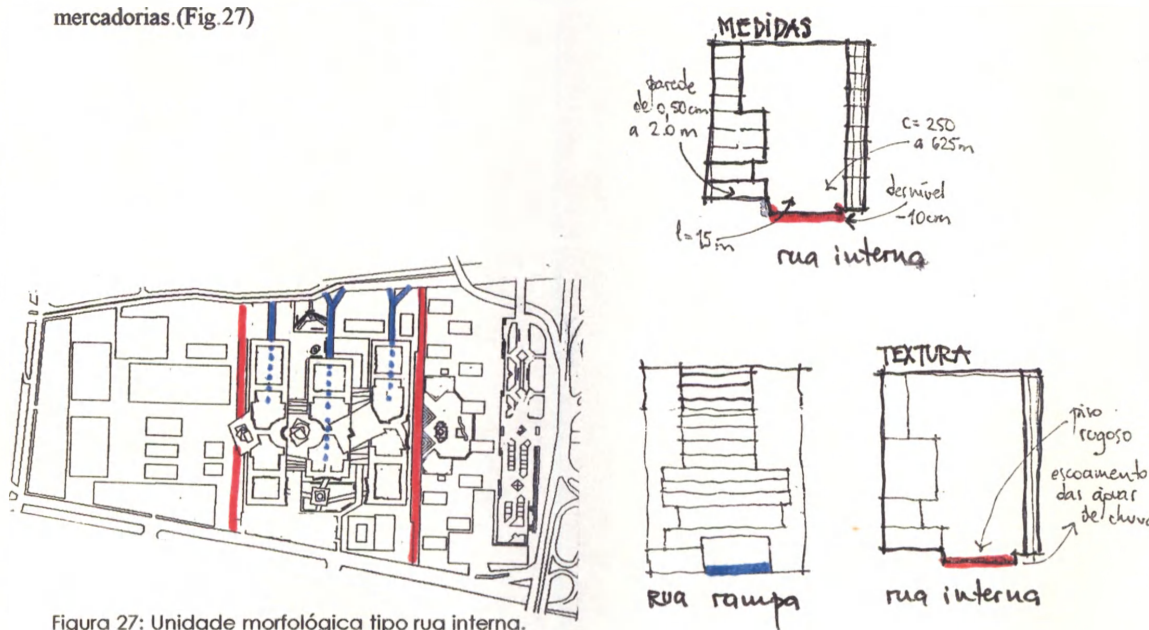 mercadorias.(Fig.27)
MEDIDAS
parede
de 0,50cm
a 2.0 m
c= 250
a 625m
desnível
-10cm
l=15
m
rua interna
TEXTURA
piso
rugoso
escoamento
das águas
de chuva
rua rampa
rua interna
Figura 27: Unidade morfológica tipo rua interna.